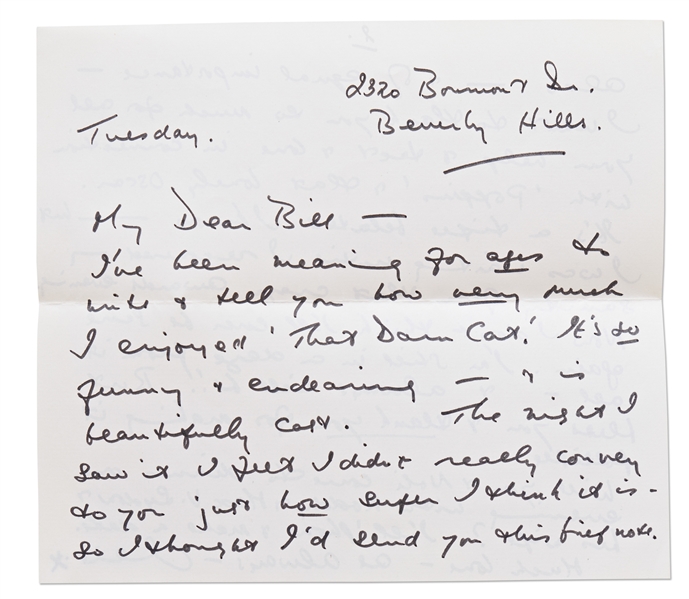 2320 Bowmont Dr.
Beverly Hills.
Tuesday.
My Dear Bill —
I've been meaning for ages to
write & tell you how very much
I enjoyed 'That Darn Cat'. It's so
funny & endearing — & is
beautifully cast. The night I
saw it I felt I didn't really convey
to you just how super I think it is -
so I thought I'd send you this brief note.